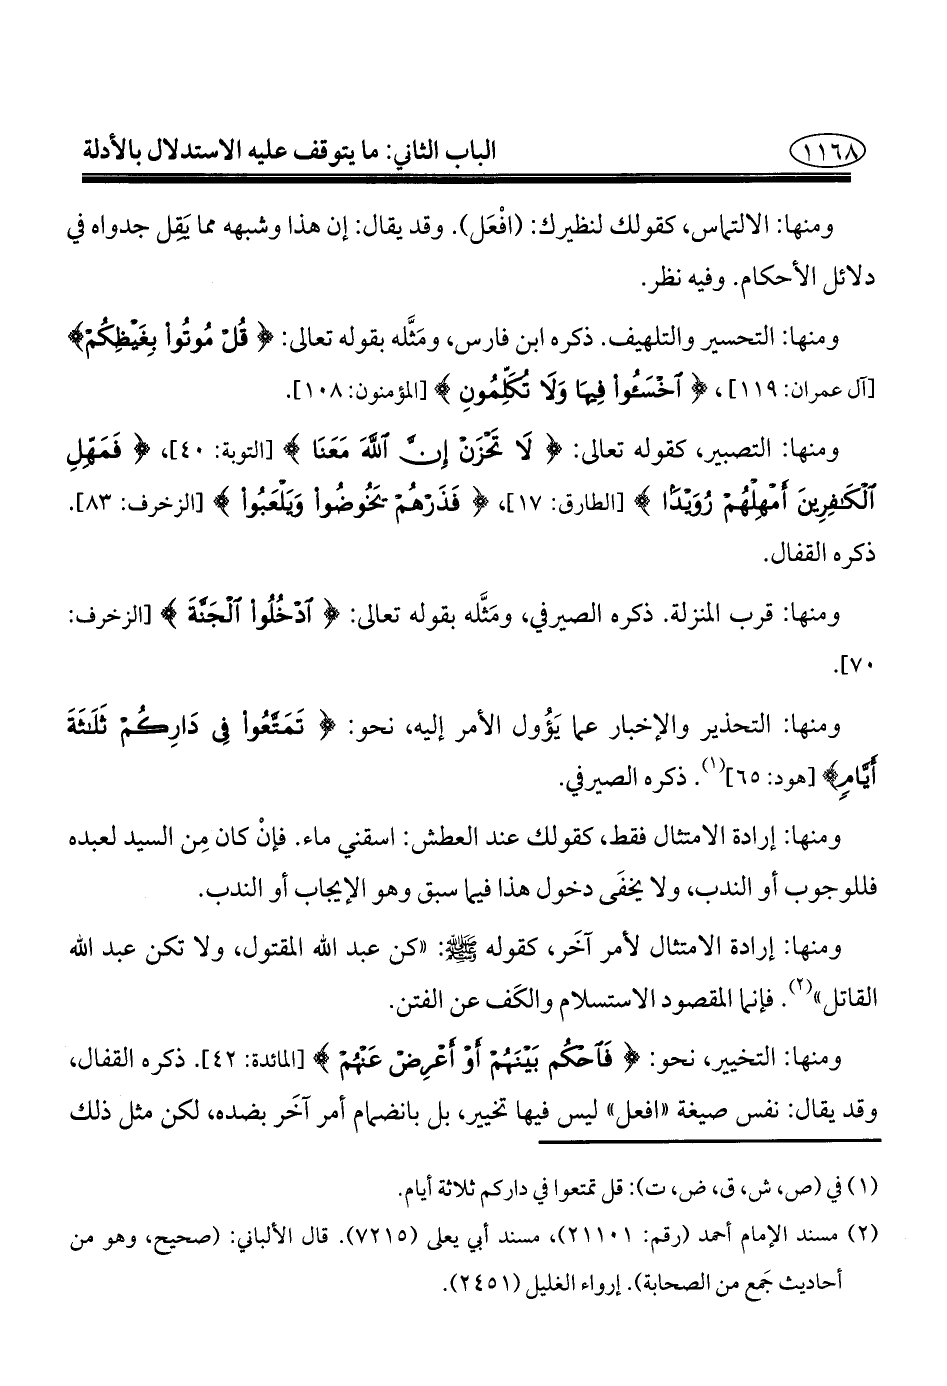 ١١٦٨ الباب الثاني: ما يتوقف عليه الاستدلال بالأدلة
ومنها: الالتماس، كقولك لنظيرك: (افْعَل). وقد يقال: إن هذا وشبهه مما يَقِل جدواه في
دلائل الأحكام. وفيه نظر.
ومنها: التحسير والتلهيف. ذكره ابن فارس، ومَثَّله بقوله تعالى: ﴿ قُلْ مُوتُوا۟ بِغَيْظِكُمْ﴾
[آل عمران: ١١٩]، ﴿ ٱخْسَـُٔوا۟ فِيهَا وَلَا تُكَلِّمُونِ ﴾ [المؤمنون: ١٠٨].
ومنها: التصبير، كقوله تعالى: ﴿ لَا تَحْزَنْ إِنَّ ٱللَّهَ مَعَنَا ﴾ [التوبة: ٤٠]، ﴿ فَمَهِّلِ
ٱلْكَـٰفِرِينَ أَمْهِلْهُمْ رُوَيْدًۢا ﴾ [الطارق: ١٧]، ﴿ فَذَرْهُمْ يَخُوضُوا۟ وَيَلْعَبُوا۟ ﴾ [الزخرف: ٨٣].
ذكره القفال.
ومنها: قرب المنزلة. ذكره الصيرفي، ومَثَّله بقوله تعالى: ﴿ ٱدْخُلُوا۟ ٱلْجَنَّةَ ﴾ [الزخرف:
٧٠].
ومنها: التحذير والإخبار عما يَؤُول الأمر إليه، نحو: ﴿ تَمَتَّعُوا۟ فِى دَارِكُمْ ثَلَـٰثَةَ
أَيَّامٍ﴾ [هود: ٦٥](١). ذكره الصيرفي.
ومنها: إرادة الامتثال فقط، كقولك عند العطش: اسقني ماء. فإنْ كان مِن السيد لعبده
فللوجوب أو الندب، ولا يخفَى دخول هذا فيما سبق وهو الإيجاب أو الندب.
ومنها: إرادة الامتثال لأمر آخَر، كقوله ﷺ: «كن عبد الله المقتول، ولا تكن عبد الله
القاتل»(٢). فإنما المقصود الاستسلام والكَف عن الفتن.
ومنها: التخيير، نحو: ﴿ فَٱحْكُم بَيْنَهُمْ أَوْ أَعْرِضْ عَنْهُمْ ﴾ [المائدة: ٤٢]. ذكره القفال،
وقد يقال: نفس صيغة «افعل» ليس فيها تخيير، بل بانضمام أمر آخَر بضده، لكن مثل ذلك
(١) في (ص، ش، ق، ض، ت): قل تمتعوا في داركم ثلاثة أيام.
(٢) مسند الإمام أحمد (رقم: ٢١١٠١)، مسند أبي يعلى (٧٢١٥). قال الألباني: (صحيح، وهو من
أحاديث جَمع من الصحابة). إرواء الغليل (٢٤٥١).